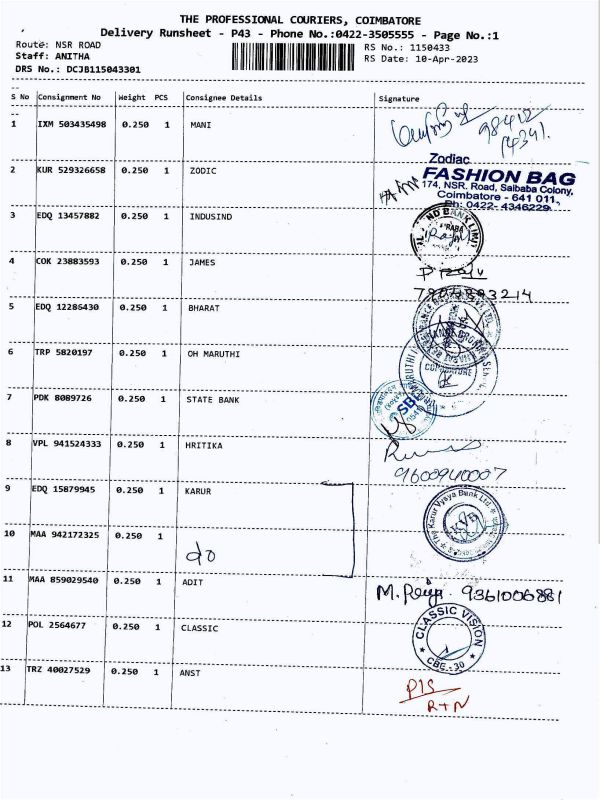 THE PROFESSIONAL COURIERS, COIMBATORE
Delivery Runsheet - P43 - Phone No.:0422-3505555 - Page No.:1
Route: NSR ROAD
Staff: ANITHA
DRS No.: DCJB115043301
RS No.: 1150433
RS Date: 10-Apr-2023
S No Consignment No Weight PCS Consignee Details Signature
1 IXM 503435498 0.250 1 MANI
98412
2 KUR 529326658 0.250 1 ZODIC
Zodiac
FASHION BAG
174, NSR. Road, Saibaba Colony,
Coimbatore - 641 011.
Ph: 0422- 4346229
3 EDQ 13457882 0.250 1 INDUSIND
4 COK 23883593 0.250 1 JAMES
5 EDQ 12286430 0.250 1 BHARAT
6 TRP 5820197 0.250 1 OH MARUTHI
COIMBATORE
7 PDK 8089726 0.250 1 STATE BANK
SBI
8 VPL 941524333 0.250 1 HRITIKA
9600940007
9 EDQ 15879945 0.250 1 KARUR
The Karur Vysya Bank Ltd.
10 MAA 942172325 0.250 1
do
11 MAA 859029540 0.250 1 ADIT
M. Priya 9361006881
12 POL 2564677 0.250 1 CLASSIC
CLASSIC VISION
CBE-30
13 TRZ 40027529 0.250 1 ANST
PIS
RTN